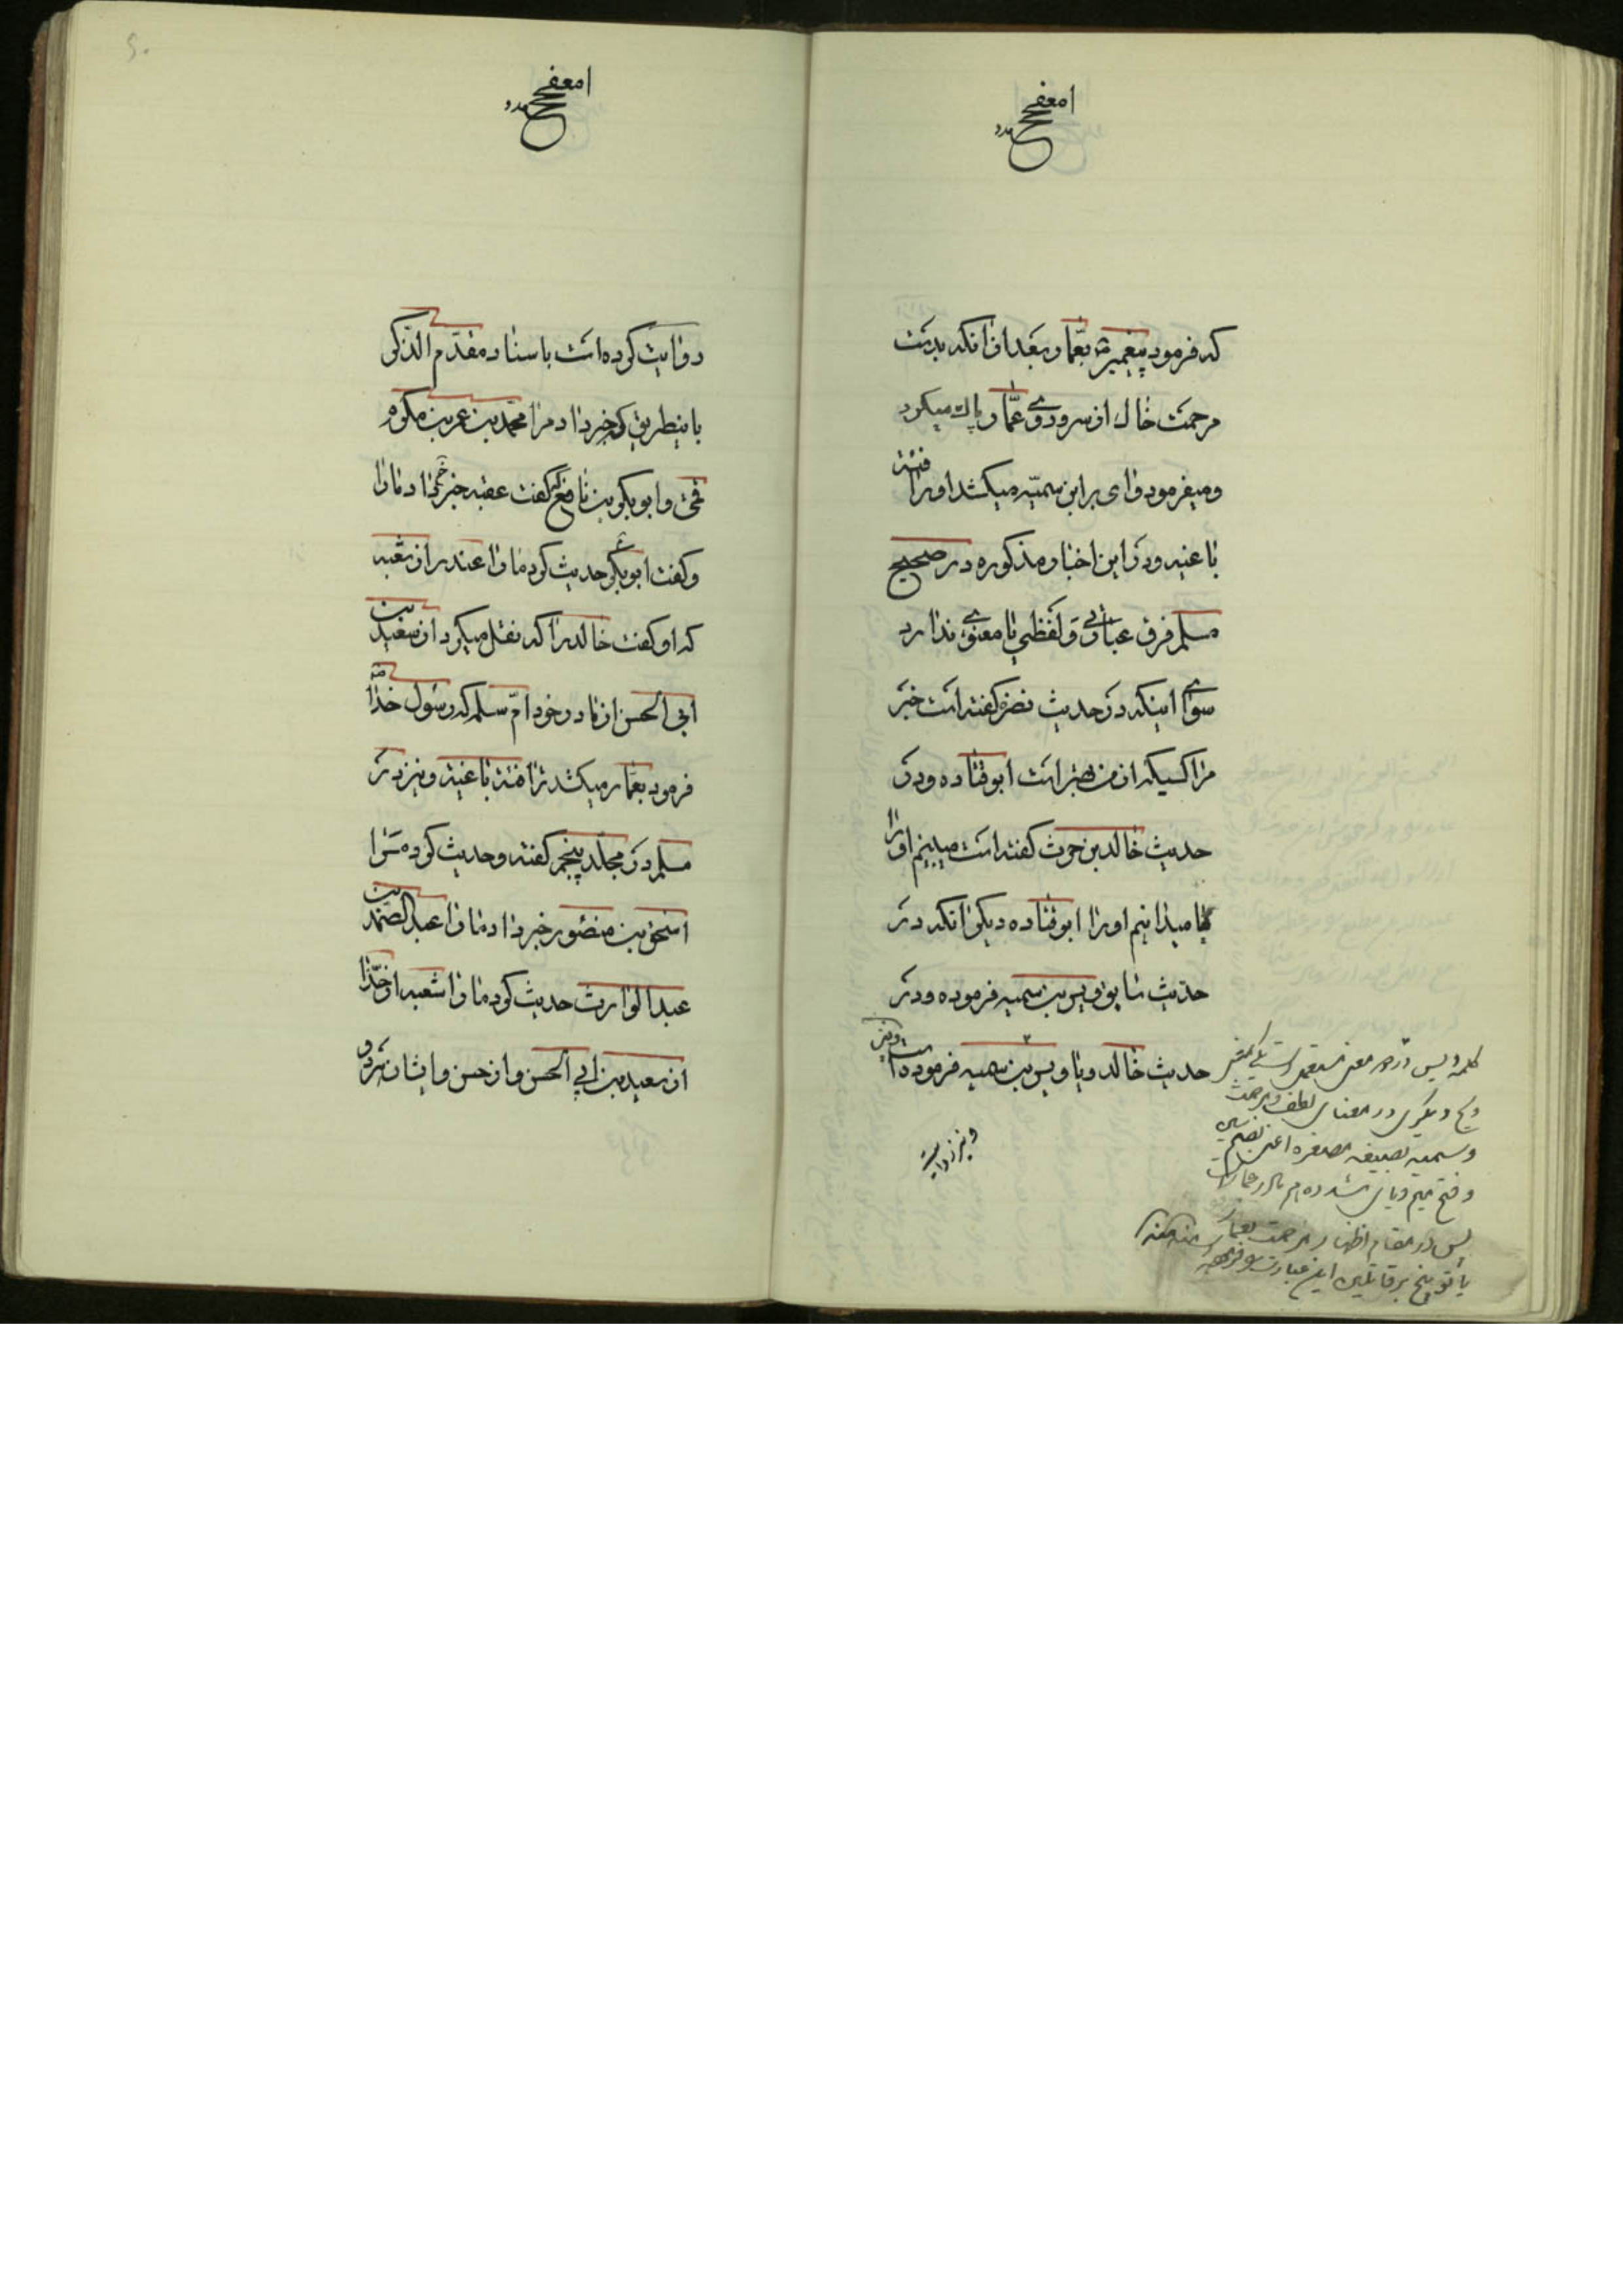 که فرمود پیغمبر بعمار بعد از آنکه بدست
مرحمت خاك از سر و روی عمّار پاك میکرد
و میفرمود وای بر ابن سمیّه میکشد او را فئه
باغیه و در این اخبار مذکوره در صحیح
مسلم فرق عبارتی و لفظی یا معنوی ندارد
سوای اینکه در حدیث نضره گفته است خبر
مرا کسیکه از من بهتر است ابو قتاده و در
حدیث خالد بن حرث گفته است میبینم او را
میدانیم او را ابو قتاده دیگر آنکه در
حدیث سابق ویس بن سمیه فرموده و در
حدیث خالد ویا ویس بن سمیه فرموده است و نیز
و نیز روایت
کلمه ویس در دو معنی مستعمل است یکی
ویح دیگری در معنای لطف و مرحمت
و سمیه بصیغه مصغره اعنی بضم سین
و فتح میم و یای مشدده نام مادر عمار است
پس در مقام اظهار مرحمت بعمار
یا توبیخ بر قاتلین این عبارت را فرموده منه
روایت کرده است باسناد مقدّم الذکر
باینطریق که خبر داد مرا محمّد بن عمرو بن مکرم
عمّی و ابو بکر بن نافع گفت عقبه خبر داد ما را
و گفت ابو بکر حدیث کرد ما را غندر از شعبه
که او گفت خالد را که نقل میکرد از سعید بن
ابی الحسن از مادر خود امّ سلمه که رسول خدا
فرمود بعمّار میکشد ترا فئة باغیة و نیز در
مسلم در مجلد پنجم گفته و حدیث کرده مرا
اسحق بن منصور خبر داد ما را عبد الصمد بن
عبد الوارث حدیث کرد ما را شعبه از خالد
از سعید بن ابی الحسن و از حسن و ایشان